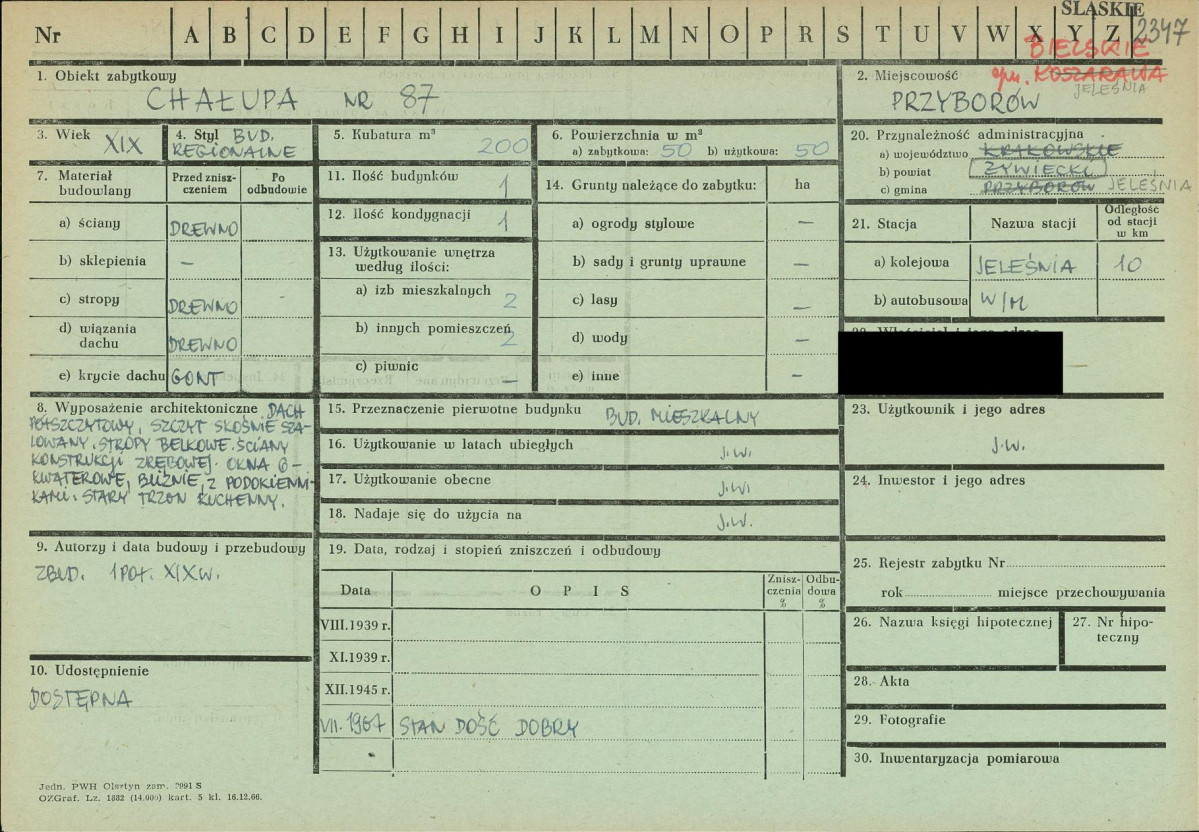 ŚLĄSKIE
Nr A B C D E F G H I J K L M N O P R S T U V W X Y Z 2347
BIELSKIE
gm. KOSZARAWA
JELEŚNIA
1. Obiekt zabytkowy
CHAŁUPA NR 87
2. Miejscowość
PRZYBORÓW
3. Wiek XIX
4. Styl BUD.
REGIONALNE
5. Kubatura m³
200
6. Powierzchnia w m²
a) zabytkowa: 50 b) użytkowa: 50
7. Materiał budowlany
Przed zniszczeniem
Po odbudowie
a) ściany DREWNO
b) sklepienia –
c) stropy DREWNO
d) wiązania
dachu DREWNO
e) krycie dachu GONT
8. Wyposażenie architektoniczne DACH
PÓŁSZCZYTOWY, SZCZYT SKOŚNIE SZA-
LOWANY. STROPY BELKOWE. ŚCIANY
KONSTRUKCJI ZRĘBOWEJ. OKNA 6-
KWATEROWE, BLIŹNIE, Z PODOKIENNI-
KAMI. STARY TRZON KUCHENNY.
9. Autorzy i data budowy i przebudowy
ZBUD. 1 POŁ. XIX W.
10. Udostępnienie
DOSTĘPNA
11. Ilość budynków 1
12. Ilość kondygnacji 1
13. Użytkowanie wnętrza
według ilości:
a) izb mieszkalnych 2
b) innych pomieszczeń 2
c) piwnic –
14. Grunty należące do zabytku: ha
a) ogrody stylowe –
b) sady i grunty uprawne –
c) lasy –
d) wody –
e) inne –
15. Przeznaczenie pierwotne budynku BUD. MIESZKALNY
16. Użytkowanie w latach ubiegłych J.W.
17. Użytkowanie obecne J.W.
18. Nadaje się do użycia na J.W.
19. Data, rodzaj i stopień zniszczeń i odbudowy
Data OPIS Zniszczenia % Odbudowa %
VIII.1939 r.
XI.1939 r.
XII.1945 r.
VII.1967 STAN DOŚĆ DOBRY
20. Przynależność administracyjna
a) województwo KRAKOWSKIE
b) powiat ŻYWIECKI
c) gmina PRZYBORÓW JELEŚNIA
21. Stacja Nazwa stacji Odległość
od stacji
w km
a) kolejowa JELEŚNIA 10
b) autobusowa W/M
23. Użytkownik i jego adres
J.W.
24. Inwestor i jego adres
25. Rejestr zabytku Nr
rok miejsce przechowywania
26. Nazwa księgi hipotecznej
27. Nr hipo-
teczny
28. Akta
29. Fotografie
30. Inwentaryzacja pomiarowa
Jedn. PWH Olsztyn zam. 2991 S
OZGraf. Lz. 1882 (14.000) kart. 5 kl. 16.12.66.